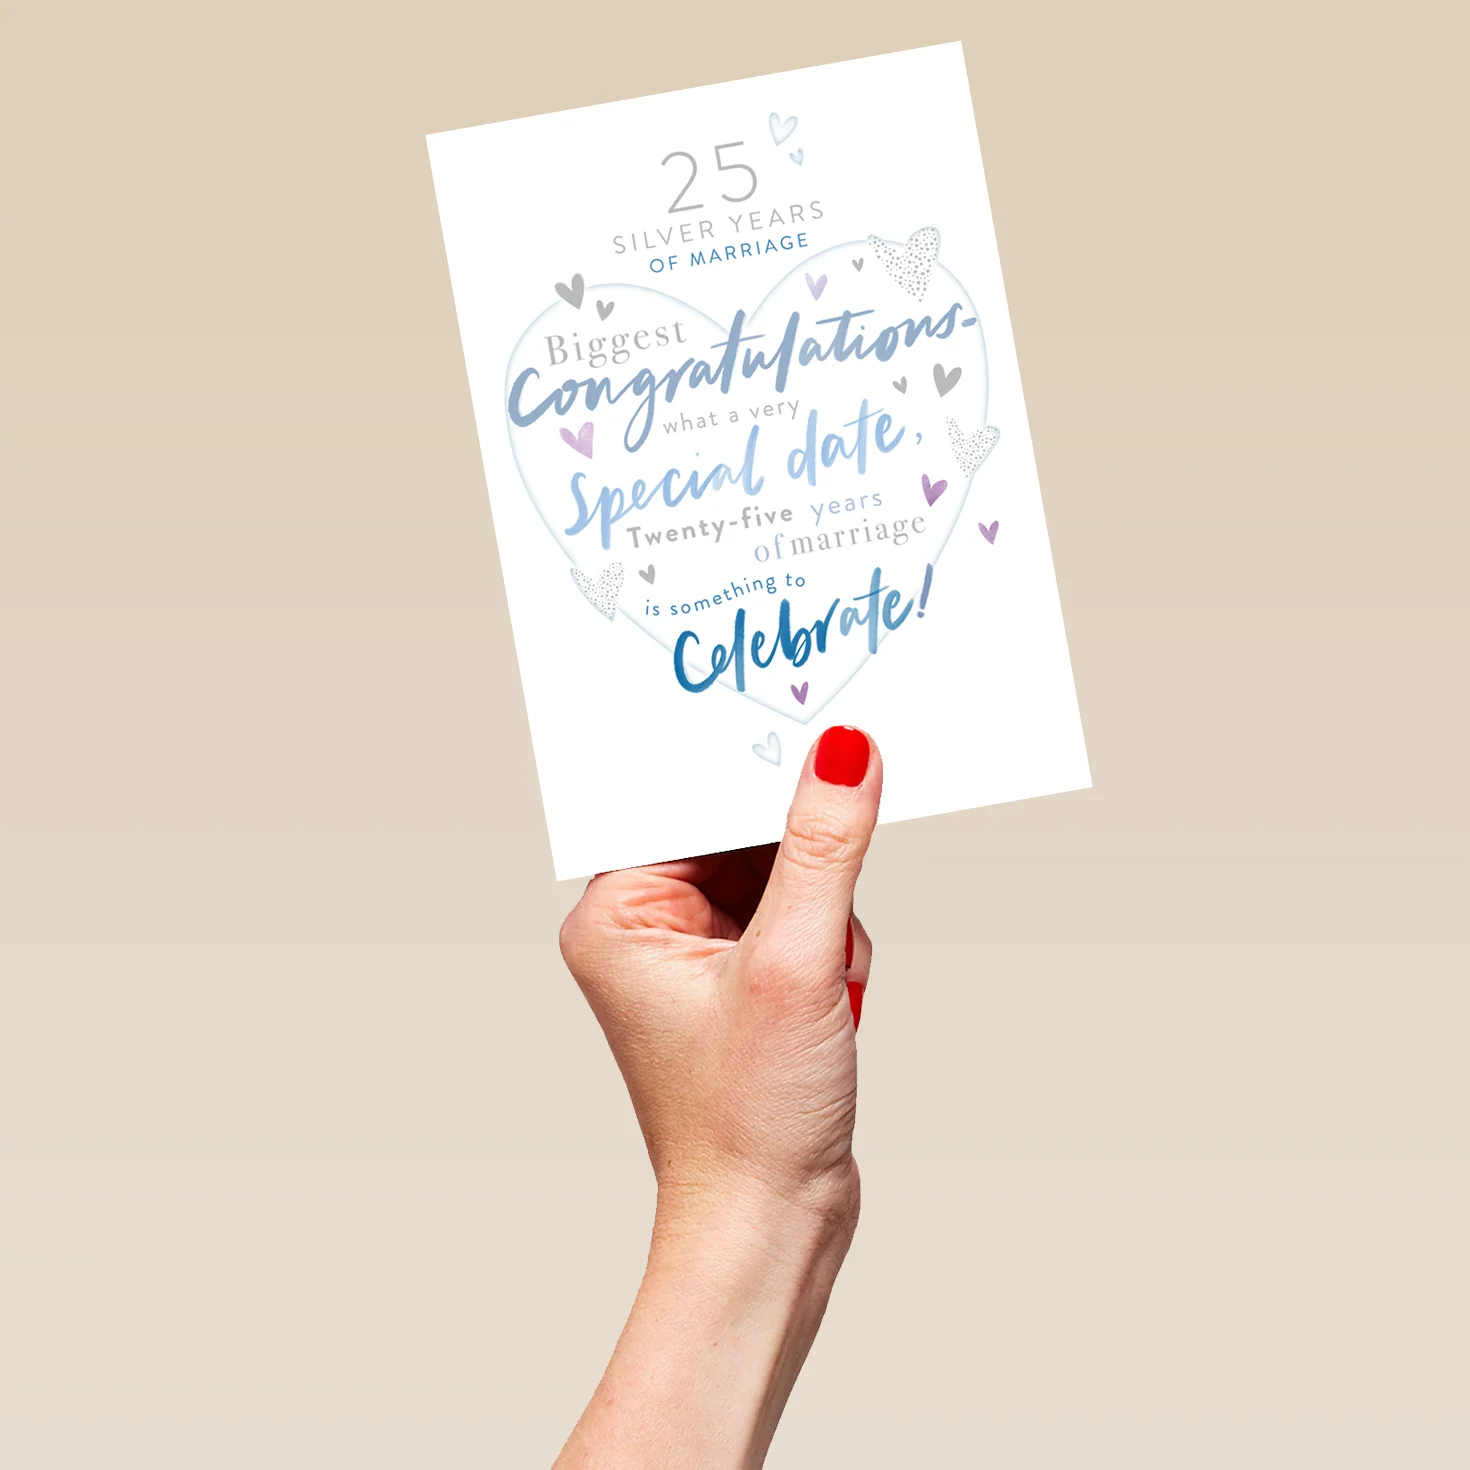 25
SILVER YEARS
OF MARRIAGE
Biggest
Congratulations-
what a very
Special date,
Twenty-five years
of marriage
is something to
Celebrate!